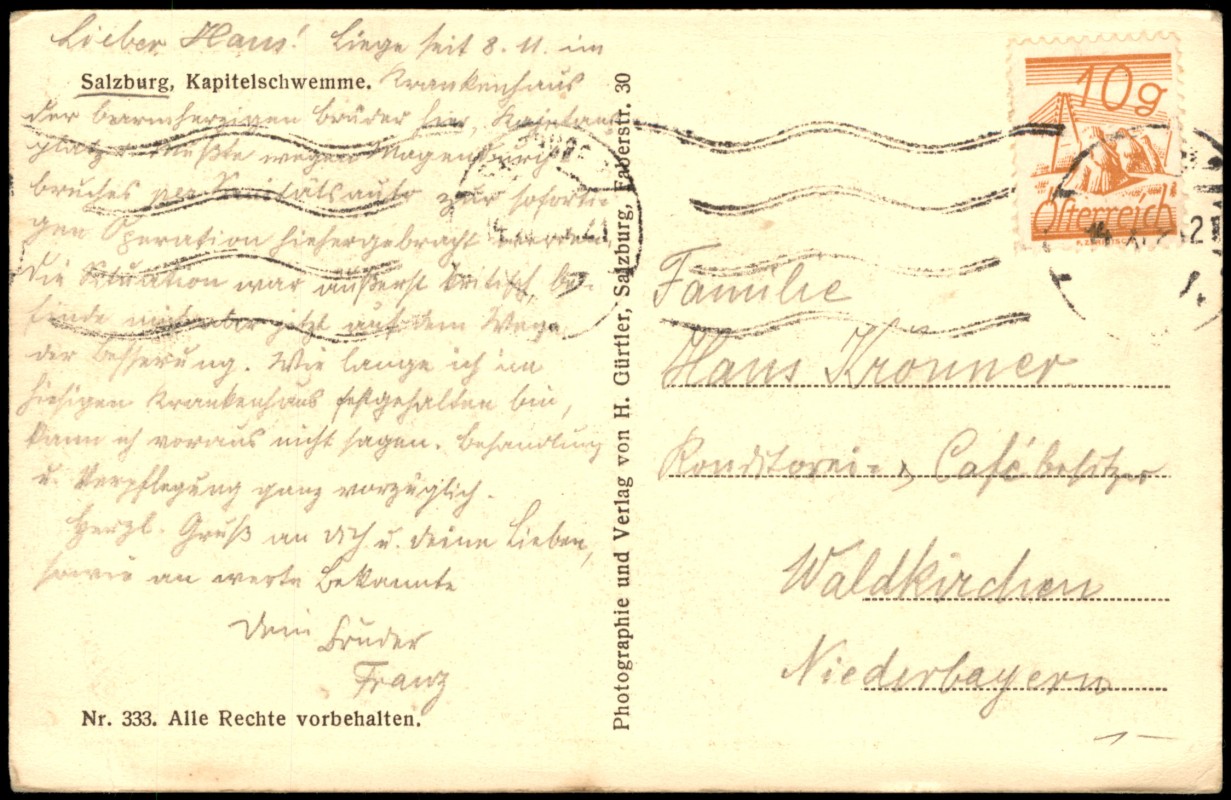 Lieber Hans! Liege seit 8. 11. im
Salzburg, Kapitelschwemme.
Krankenhaus
der barmherzigen Brüder hier,
platz. Mußte wegen Magendurch
bruches per Sanitätsauto zur soforti-
gen Operation hierhergebracht werden.
Die Situation war äußerst kritisch, be-
finde mich aber jetzt auf dem Wege
der Besserung. Wie lange ich im
hiesigen Krankenhaus festgehalten bin,
kann ich voraus nicht sagen. Behandlung
u. Verpflegung ganz vorzüglich.
Herzl. Gruß an Dich u. deine Lieben,
sowie an werte Bekannte
Dein Bruder
Franz
Nr. 333. Alle Rechte vorbehalten.
Photographie und Verlag von H. Gürtler, Salzburg, Faberstr. 30
10 g
Österreich
Familie
Hans Kronner
Konditorei-, Cafébesitzer
Waldkirchen
Niederbayern